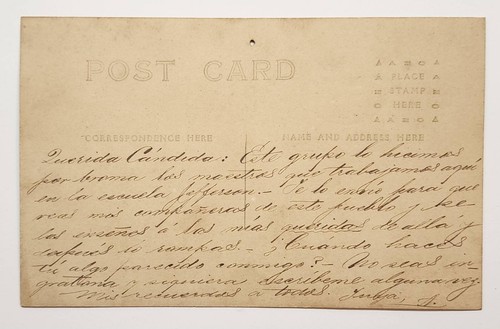 POST CARD
AZO
PLACE
STAMP
HERE
AZO
CORRESPONDENCE HERE
NAME AND ADDRESS HERE
Querida Cándida: Este grupo lo hicimos
por broma las maestras que trabajamos aquí
en la escuela Jefferson.- Te lo envío para que
veas mis compañeras de este pueblo y se
las enseñes á las mías queridas de alla y
después lo rompas.- ¿Cuando haces
tú algo parecido conmigo?- No seas in-
gratona y siquiera escríbeme alguna vez
Mis recuerdos a todos. Tuya,